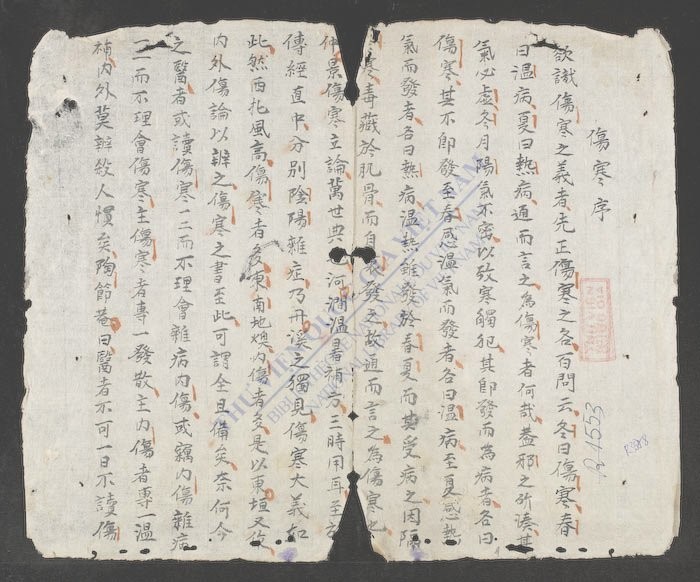 傷寒序
欲識傷寒之義者先正傷寒之名百問云冬曰傷寒春
曰温病夏曰熱病通而言之為傷寒者何哉盖邪之所湊其
氣必虚冬月陽氣不宻以致寒觸犯其即發而為病者名曰
傷寒其不即發至春感温氣而發者名曰温病至夏感熱
氣而發者名曰熱病温熱雖發於春夏而其受病之因
寒毒藏於肌骨而自發之故通而言之為傷寒也
仲景傷寒立論萬世典河澗温暑補方三時用耳至
傳經直中分别陰陽雜症乃丹溪之獨見傷寒大義如
此然西北風高傷寒者多東南地熄内傷者多是以東垣又作
内外傷論以辨之傷寒之書至此可謂全且備矣奈何今
之醫者或讀傷寒一二而不理會雜病内傷或竊内傷雜病
一二而不理會傷寒主傷寒者專一發散主内傷者專一温
補内外莫辨殺人慣矣陶節菴曰醫者不可一日不讀傷
R.1553
THƯ VIỆN QUỐC GIA VIỆT NAM
BIBLIOTHÈQUE NATIONALE DU VIETNAM
NATIONAL LIBRARY OF VIETNAM